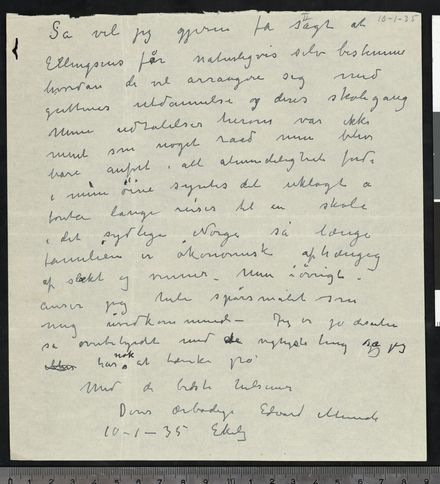 II 10-1-35
Så vil jeg gjerne få sagt at
Ellingsens får naturligvis selv bestemme
hvordan de vil arrangere sig med
guttenes uddannelse og deres skolegang
Mine udtalelser herom var ikke
ment som noget raad men blev
bare anført i all almindelighed fordi
i mine öine syntes det uklogt a
foreta lange reiser til en skole
i det sydlige Norge så længe
familien er ökonomisk afhængig
af slekt og venner. Men iövrigt
anser jeg hele spörsmålet som
mig uvedkommende – Jeg er jo desuden
så overbebyrdet med de nyeste ting så jeg
har nok at tænke på
Med de bedste hilsener
Deres ærbødige Edvard Munch
10-1-35 Ekely